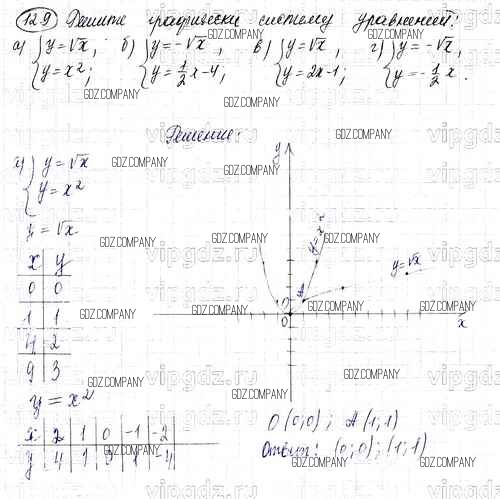 129 Решите графически систему уравнений:
а) { y=√x, y=x²; б) { y=-√x, y=1/2x-4, в) { y=√x, y=2x-1; г) { y=-√x, y=-1/2x.
GDZ.COMPANY
Решение:
а) { y=√x
y=x²
y=√x
x y
0 0
1 1
4 2
9 3
y=x²
x 2 1 0 -1 -2
y 4 1 0 1 4
y
y=x²
A
y=√x
0
x
O(0;0); A(1;1)
Ответ: (0;0);(1;1)
vipgdz.ru